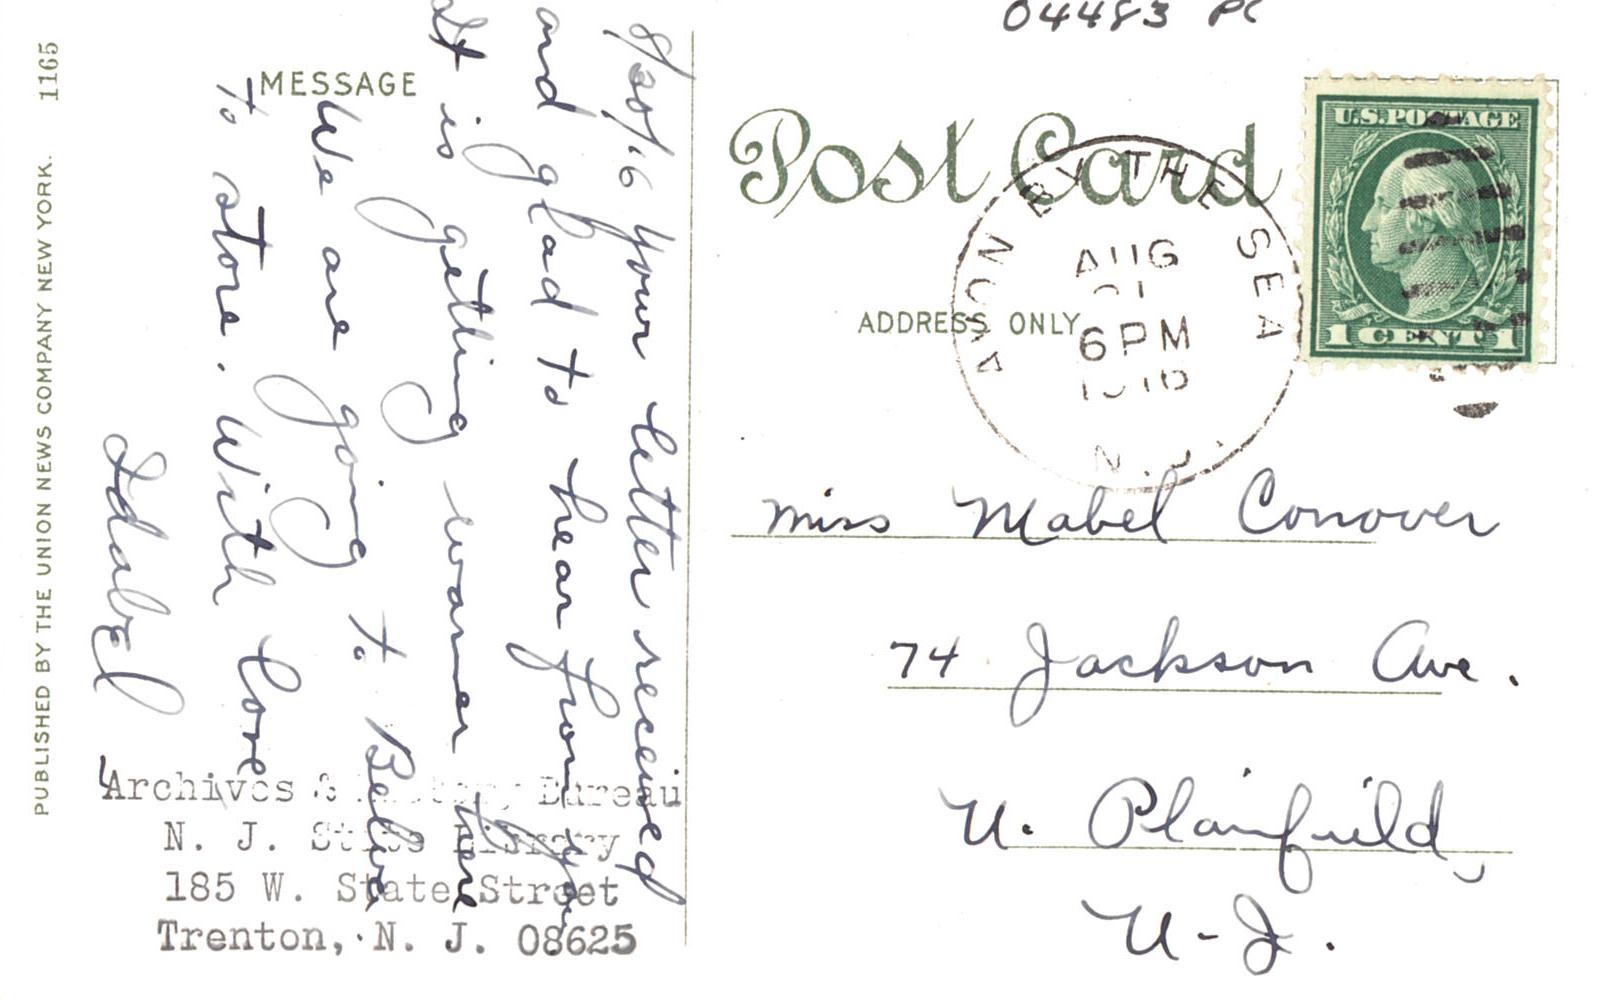 04483 PC
1165
PUBLISHED BY THE UNION NEWS COMPANY NEW YORK.
MESSAGE
8/20/16 Your letter received
and glad to hear from you
It is getting warmer here
We are going to Belmar
to store. With love
Idabel
Archives & History Bureau
N. J. State Library
185 W. State Street
Trenton, N. J. 08625
Post Card
ADDRESS ONLY
AVON BY THE SEA
AUG
21
6 PM
1916
N.J.
U.S. POSTAGE
1 CENT 1
Miss Mabel Conover
74 Jackson Ave.
N. Plainfield,
N-J.